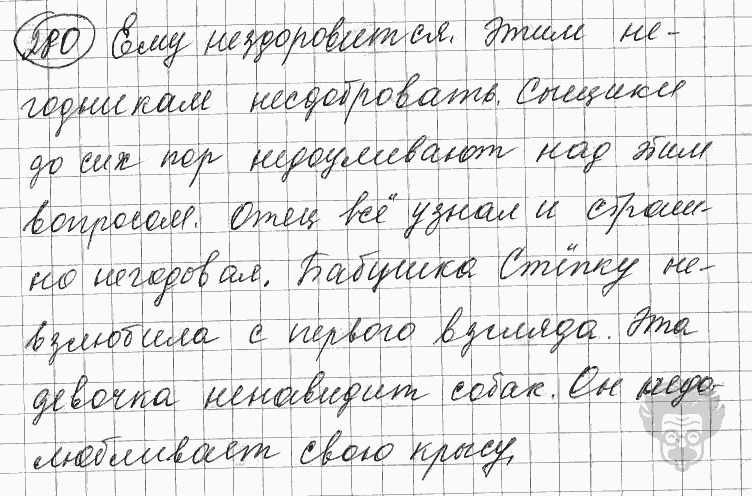 280 Ему нездоровится. Этим не-
годникам несдобровать. Сыщики
до сих пор недоумевают над этим
вопросом. Отец всё узнал и страш-
но негодовал. Бабушка Стёпку не-
взлюбила с первого взгляда. Эта
девочка ненавидит собак. Он недо-
любливает свою крысу.